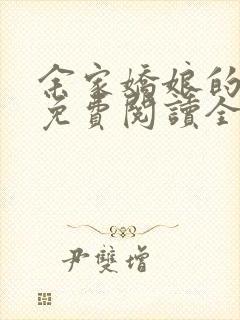 余家嬌娘的
免費閱讀全
尹雙增